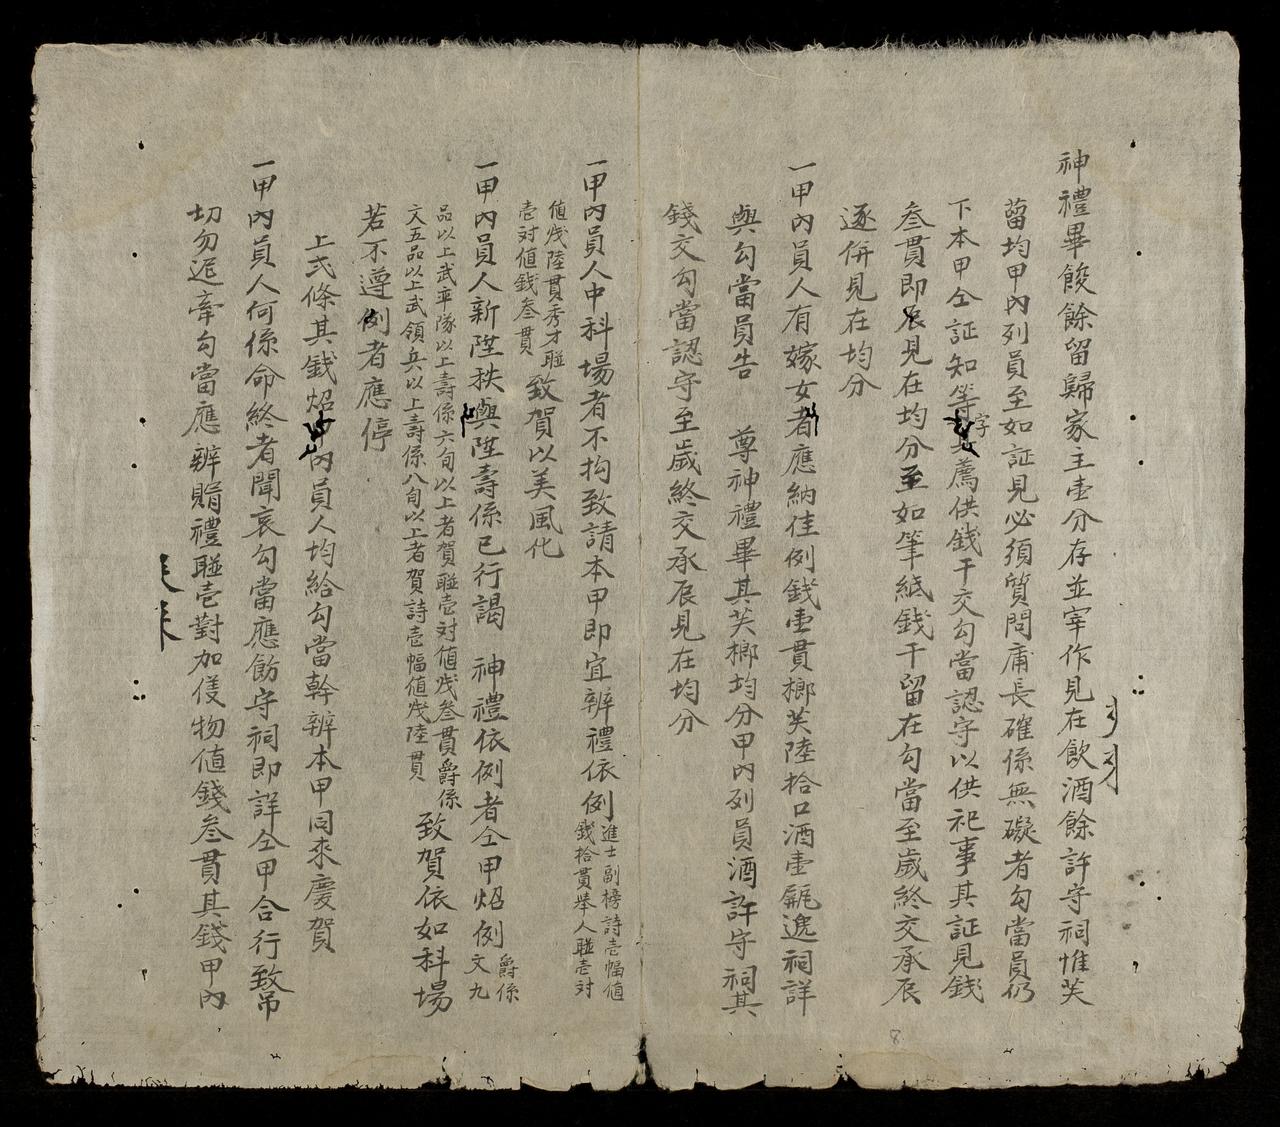 神禮畢餕餘留歸家主壹分存並宰作見在飲酒餘許守祠惟芙
蒥均甲內列員至如証見必須質問甫長確係無礙者勾當員仍
下本甲仝証知等字薦供錢干交勾當認守以供祀事其証見錢
叁貫即辰見在均分至如筆紙錢干留在勾當至歲終交承辰
逐併見在均分
一甲內員人有嫁女者應納佳例錢壹貫榔芙陸拾口酒壹甁遞祠詳
與勾當員告 尊神禮畢其芙榔均分甲內列員酒許守祠其
錢交勾當認守至歲終交承辰見在均分
一甲內員人中科場者不拘致請本甲即宜辨禮依例進士副榜詩壱幅値
錢拾貫舉人聯壱対
値戋陸貫秀才聯
壱対値錢叁貫致賀以美風化
一甲內員人新陞秩與陞壽係已行謁 神禮依例者仝甲炤例爵係
文九
品以上武率隊以上壽係六旬以上者賀聯壱対値戋叁貫爵係
文五品以上武領兵以上壽係八旬以上者賀詩壱幅値戋陸貫致賀依如科場
若不遵例者應停
上弍條其錢炤甲內員人均給勾當幹辨本甲同來慶賀
一甲內員人何係命終者聞哀勾當應飭守祠即詳仝甲合行致吊
切勿迤牽勾當應辨賻禮聯壱對加仗物値錢叁貫其錢甲內